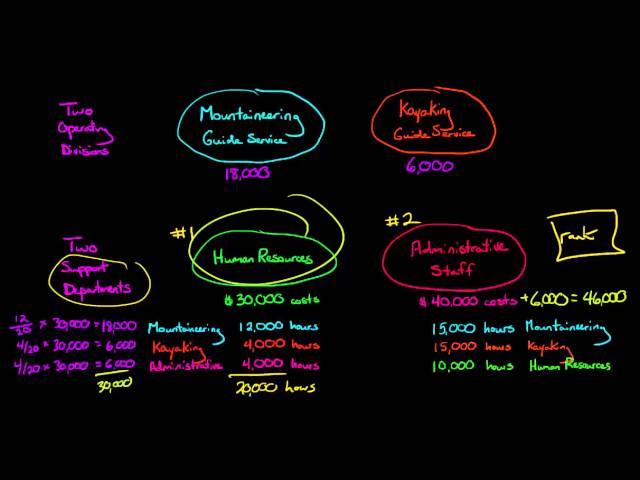 Two
Operating
Divisions
Mountaineering
Guide Service
18,000
Kayaking
Guide Service
6,000
Two
Support
Departments
#1
Human Resources
$30,000 costs
#2
Administrative
Staff
$40,000 costs + 6,000 = 46,000
rank
12/20 × 30,000 = 18,000 Mountaineering 12,000 hours
4/20 × 30,000 = 6,000 Kayaking 4,000 hours
4/20 × 30,000 = 6,000 Administrative 4,000 hours
30,000 20,000 hours
15,000 hours Mountaineering
15,000 hours Kayaking
10,000 hours Human Resources